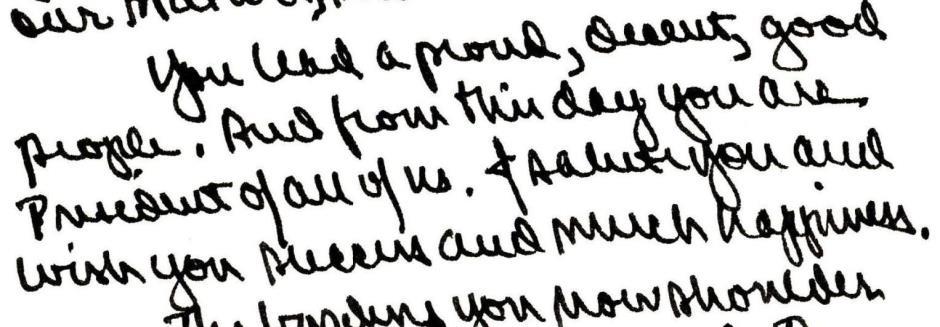 our
You lead a proud, decent, good
people. And from this day you are
President of all of us. I salute you and
wish you success and much happiness.
The burdens you now shoulder